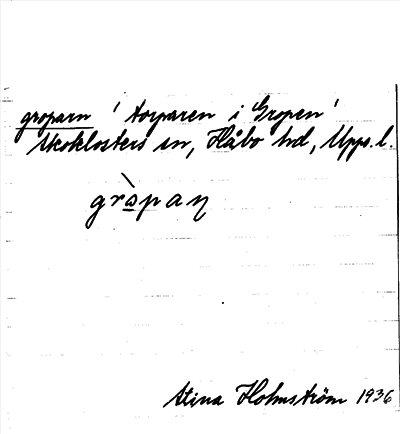 groparn 'torparen i Gropen'
Skoklosters sn, Håbo hd, Upps. l.
gròpaɳ
Stina Holmström 1936